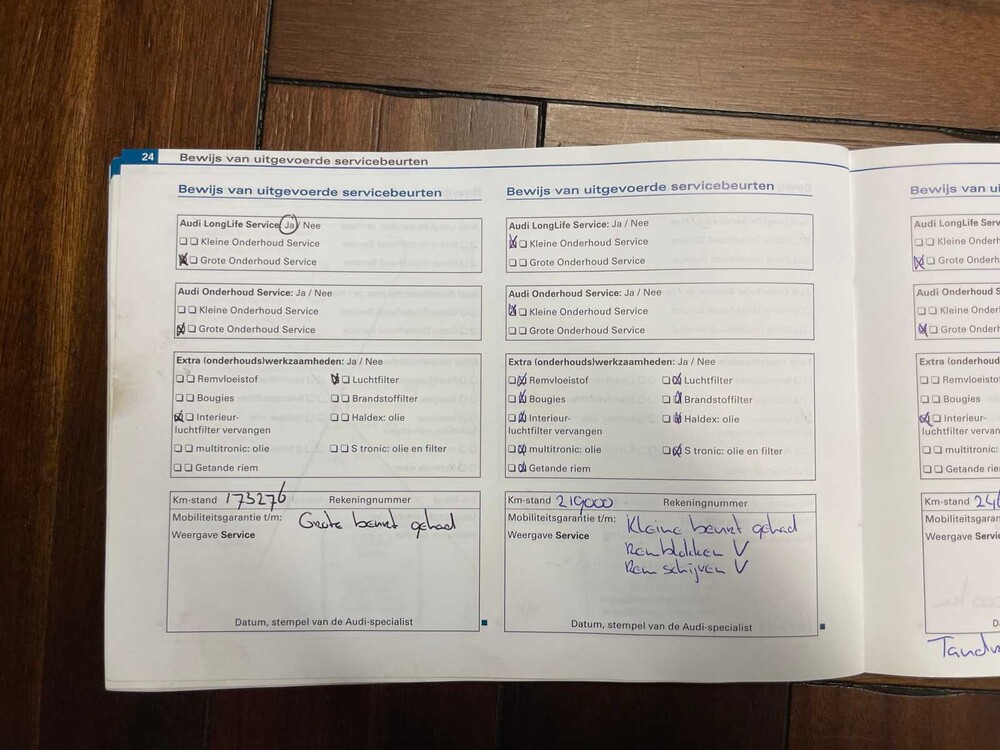 24 Bewijs van uitgevoerde servicebeurten
Bewijs van uitgevoerde servicebeurten
Audi LongLife Service: Ja / Nee
Kleine Onderhoud Service
Grote Onderhoud Service
Audi Onderhoud Service: Ja / Nee
Kleine Onderhoud Service
Grote Onderhoud Service
Extra (onderhouds)werkzaamheden: Ja / Nee
Remvloeistof Luchtfilter
Bougies Brandstoffilter
Interieur- Haldex: olie
luchtfilter vervangen
multitronic: olie S tronic: olie en filter
Getande riem
Km-stand 173276 Rekeningnummer
Mobiliteitsgarantie t/m: Grote beurt gehad
Weergave Service
Datum, stempel van de Audi-specialist
Bewijs van uitgevoerde servicebeurten
Audi LongLife Service: Ja / Nee
Kleine Onderhoud Service
Grote Onderhoud Service
Audi Onderhoud Service: Ja / Nee
Kleine Onderhoud Service
Grote Onderhoud Service
Extra (onderhouds)werkzaamheden: Ja / Nee
Remvloeistof Luchtfilter
Bougies Brandstoffilter
Interieur- Haldex: olie
luchtfilter vervangen
multitronic: olie S tronic: olie en filter
Getande riem
Km-stand 219000 Rekeningnummer
Mobiliteitsgarantie t/m: Kleine beurt gehad
Weergave Service Remblokken V
Rem schijven V
Datum, stempel van de Audi-specialist
Bewijs van ui
Audi LongLife Serv
Kleine Onderh
Grote Onderh
Audi Onderhoud S
Kleine Onderh
Grote Onderh
Extra (onderhoud
Remvloeistof
Bougies
Interieur-
luchtfilter vervan
multitronic: o
Getande riem
Km-stand 24
Mobiliteitsgarant
Weergave Servic
D